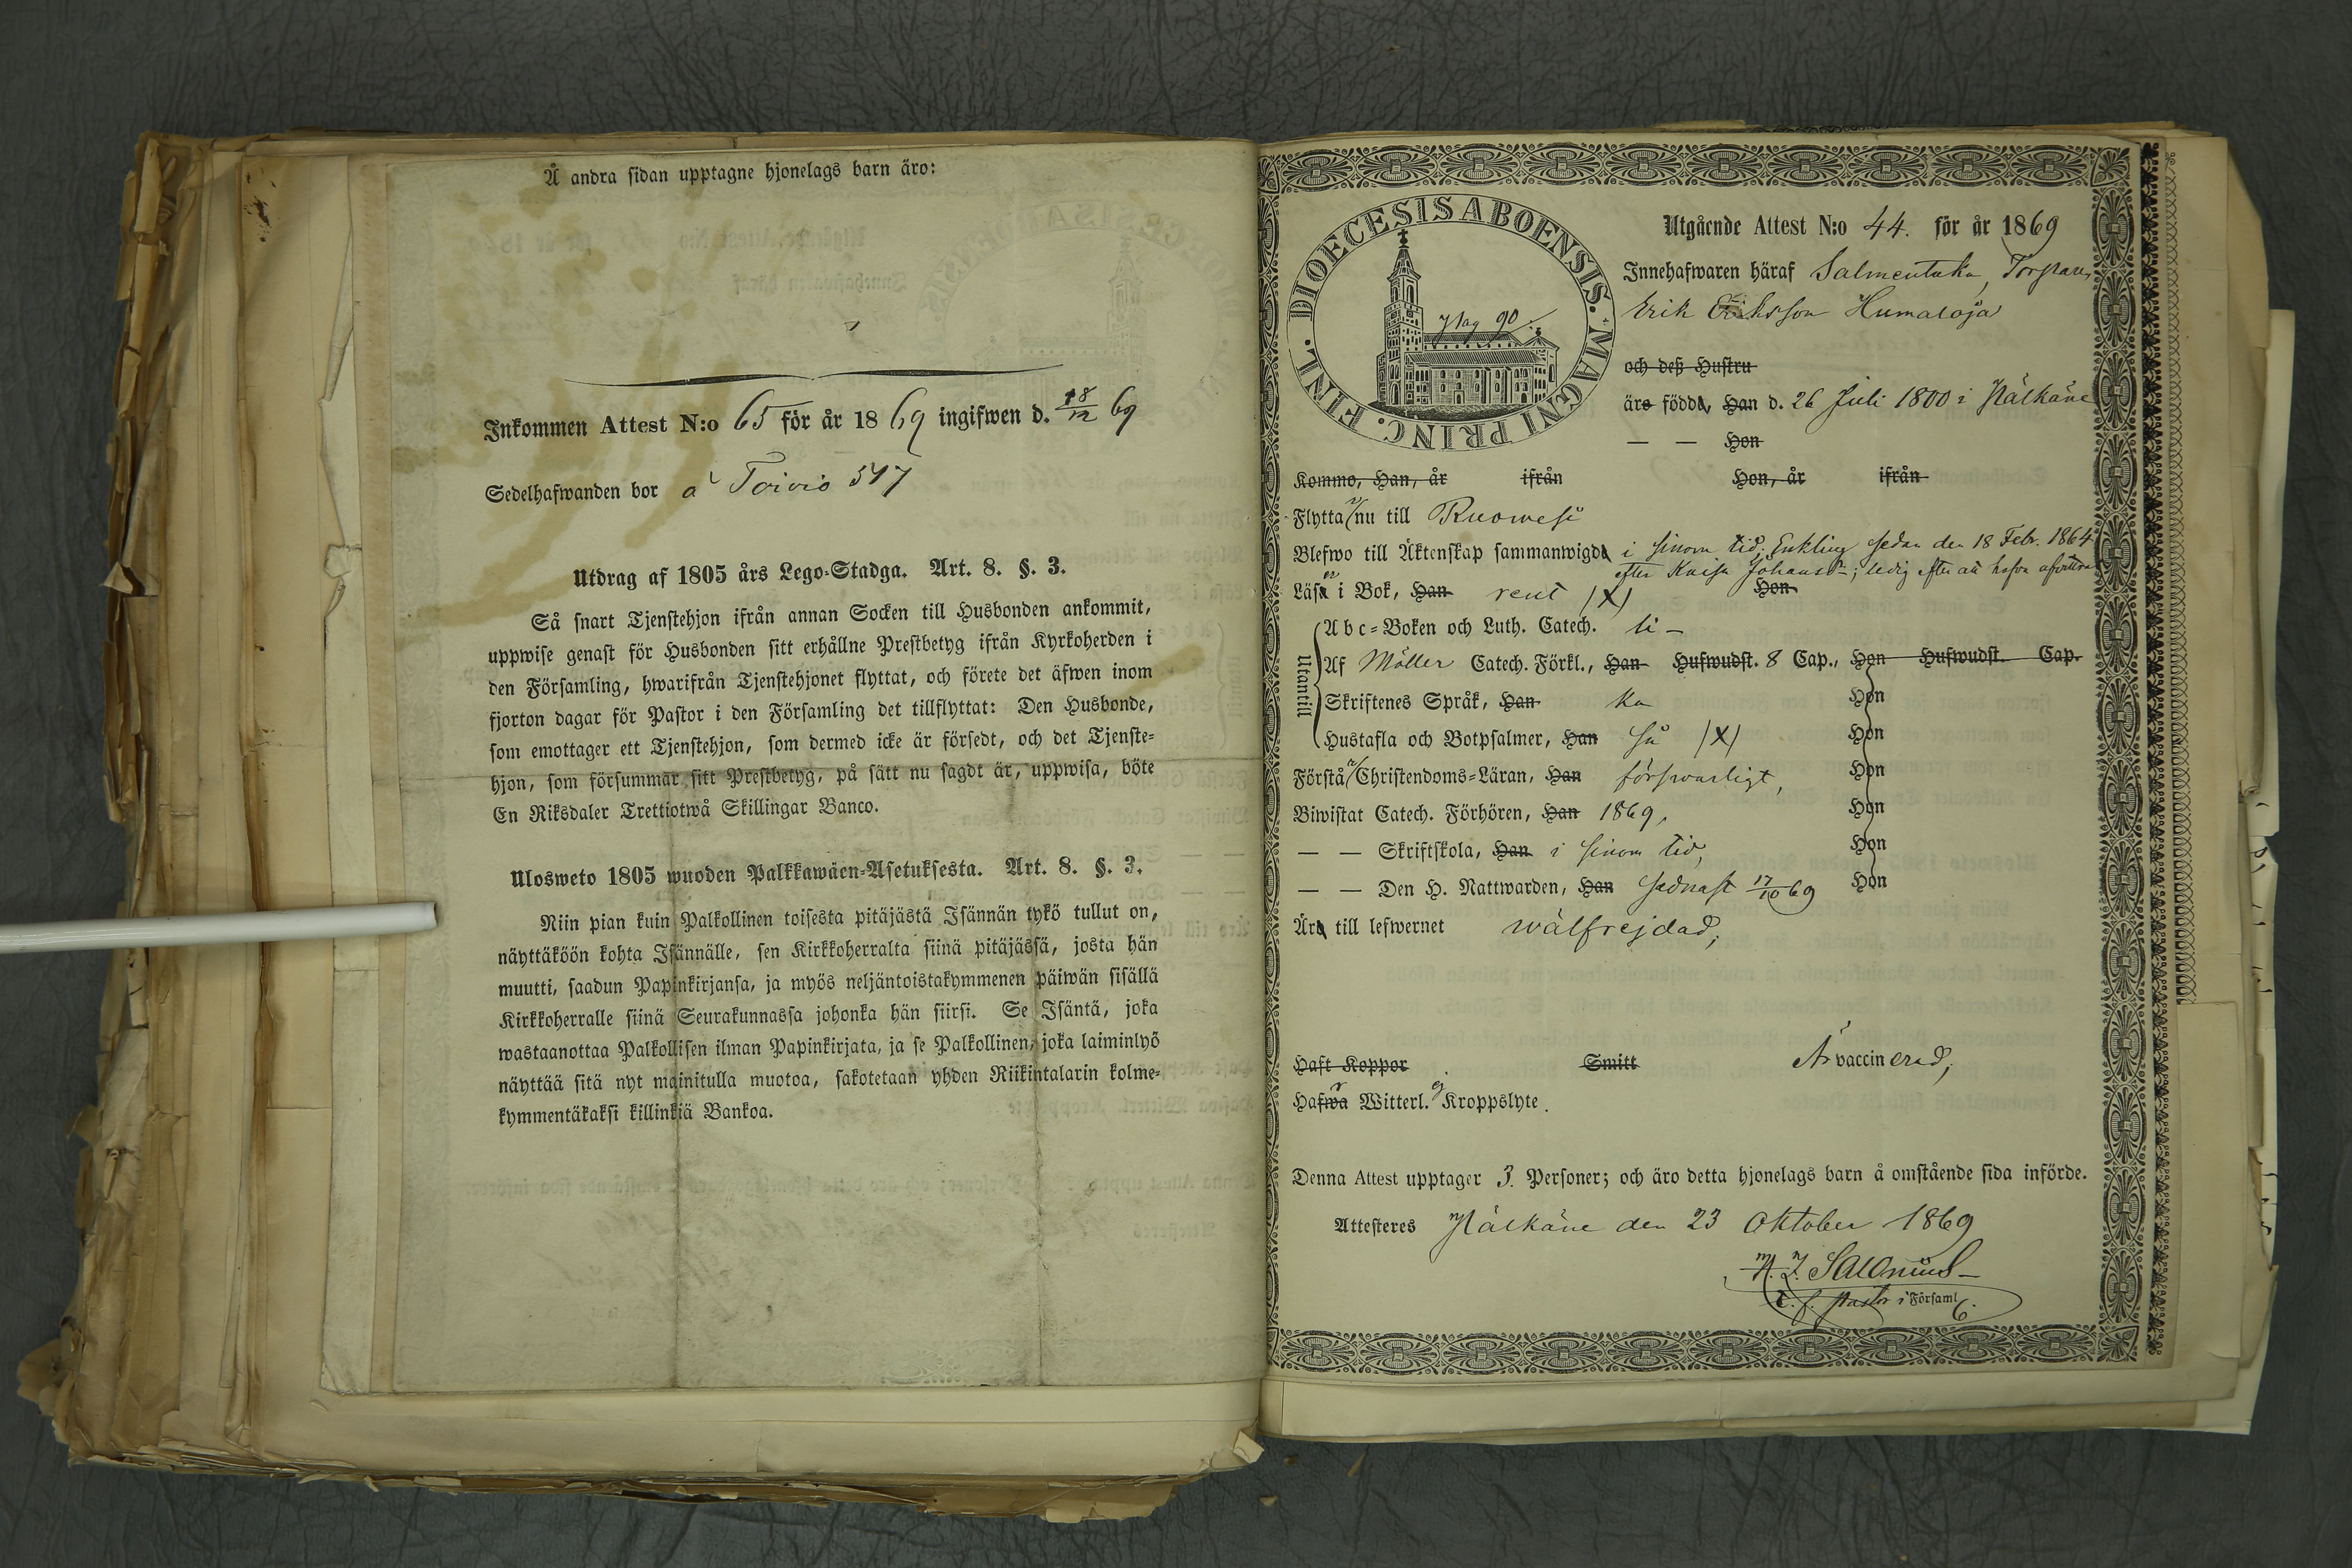 Å andra sidan upptagne hjonelags barn äro:
Inkommen Attest N:o 65 för år 1869 ingifwen d. 18/12 69
Sedelhafwanden bor å Toivio 547
Utdrag af 1805 års Lego-Stadga. Art. 8. §. 3.
Så snart Tjenstehjon ifrån annan Socken till Husbonden ankommit,
uppwise genast för Husbonden sitt erhållne Prestbetyg ifrån Kyrkoherden i
den Församling, hwarifrån Tjenstehjonet flyttat, och förete det äfwen inom
fjorton dagar för Pastor i den Församling det tillflyttat: Den Husbonde,
som emottager ett Tjenstehjon, som dermed icke är försedt, och det Tjenste-
hjon, som försummar sitt Prestbetyg, på sätt nu sagdt är, uppwisa, böte
En Riksdaler Trettiotwå Skillingar Banco.
Ulosweto 1805 wuoden Palkkawäen-Asetuksesta. Art. 8. §. 3.
Niin pian kuin Palkollinen toisesta pitäjästä Isännän tykö tullut on,
näyttäköön kohta Isännälle, sen Kirkkoherralta siinä pitäjässä, josta hän
muutti, saadun Papinkirjansa, ja myös neljäntoistakymmenen päiwän sisällä
Kirkkoherralle siinä Seurakunnassa johonka hän siirsi. Se Isäntä, joka
wastaanottaa Palkollisen ilman Papinkirjata, ja se Palkollinen, joka laiminlyö
näyttää sitä nyt mainitulla muotoa, sakotetaan yhden Riikintalarin kolme-
kymmentäkaksi killinkiä Bankoa.
DIOECESIS ABOENSIS. MAGNI PRINC. FINL.
pag 90.
Utgående Attest N:o 44. för år 1869
Innehafwaren häraf Salmentaka, Torparen
Erik Eriksson Humaloja
och deß Hustru
äro födda, Han d. 26 Juli 1800 i Pälkäne
— — Hon
Kommo, Han, år ifrån Hon, år ifrån
Flyttar nu till Ruowesi
Blefwo till Äktenskap sammanwigda i sinom tid; Enkling sedan den 18 Febr. 1864
efter Kaisa Johansdr; ledig efter att hafva afvittrat
Läser i Bok, Han rent (X) Hon
Utantill
Abc-Boken och Luth. Catech. li —
Af Möller Catech. Förkl., Han Hufwudst. 8 Cap., Hon Hufwudst. Cap.
Skriftenes Språk, Han ka Hon
Hustafla och Botpsalmer, Han su (X) Hon
Förstår Christendoms-Läran, Han förswarligt, Hon
Biwistat Catech. Förhören, Han 1869, Hon
— — Skriftskola, Han i sinom tid, Hon
— — Den H. Nattwarden, Han sednast 17/10 69 Hon
Äro till lefwernet wälfrejdad;
Haft Koppor Smitt Är vaccinerad;
Hafwa Witterl. ej Kroppslyte.
Denna Attest upptager 3. Personer; och äro detta hjonelags barn å omstående sida införde.
Attesteres Pälkäne den 23 Oktober 1869
Salonius
t. f. pastor i Församl.